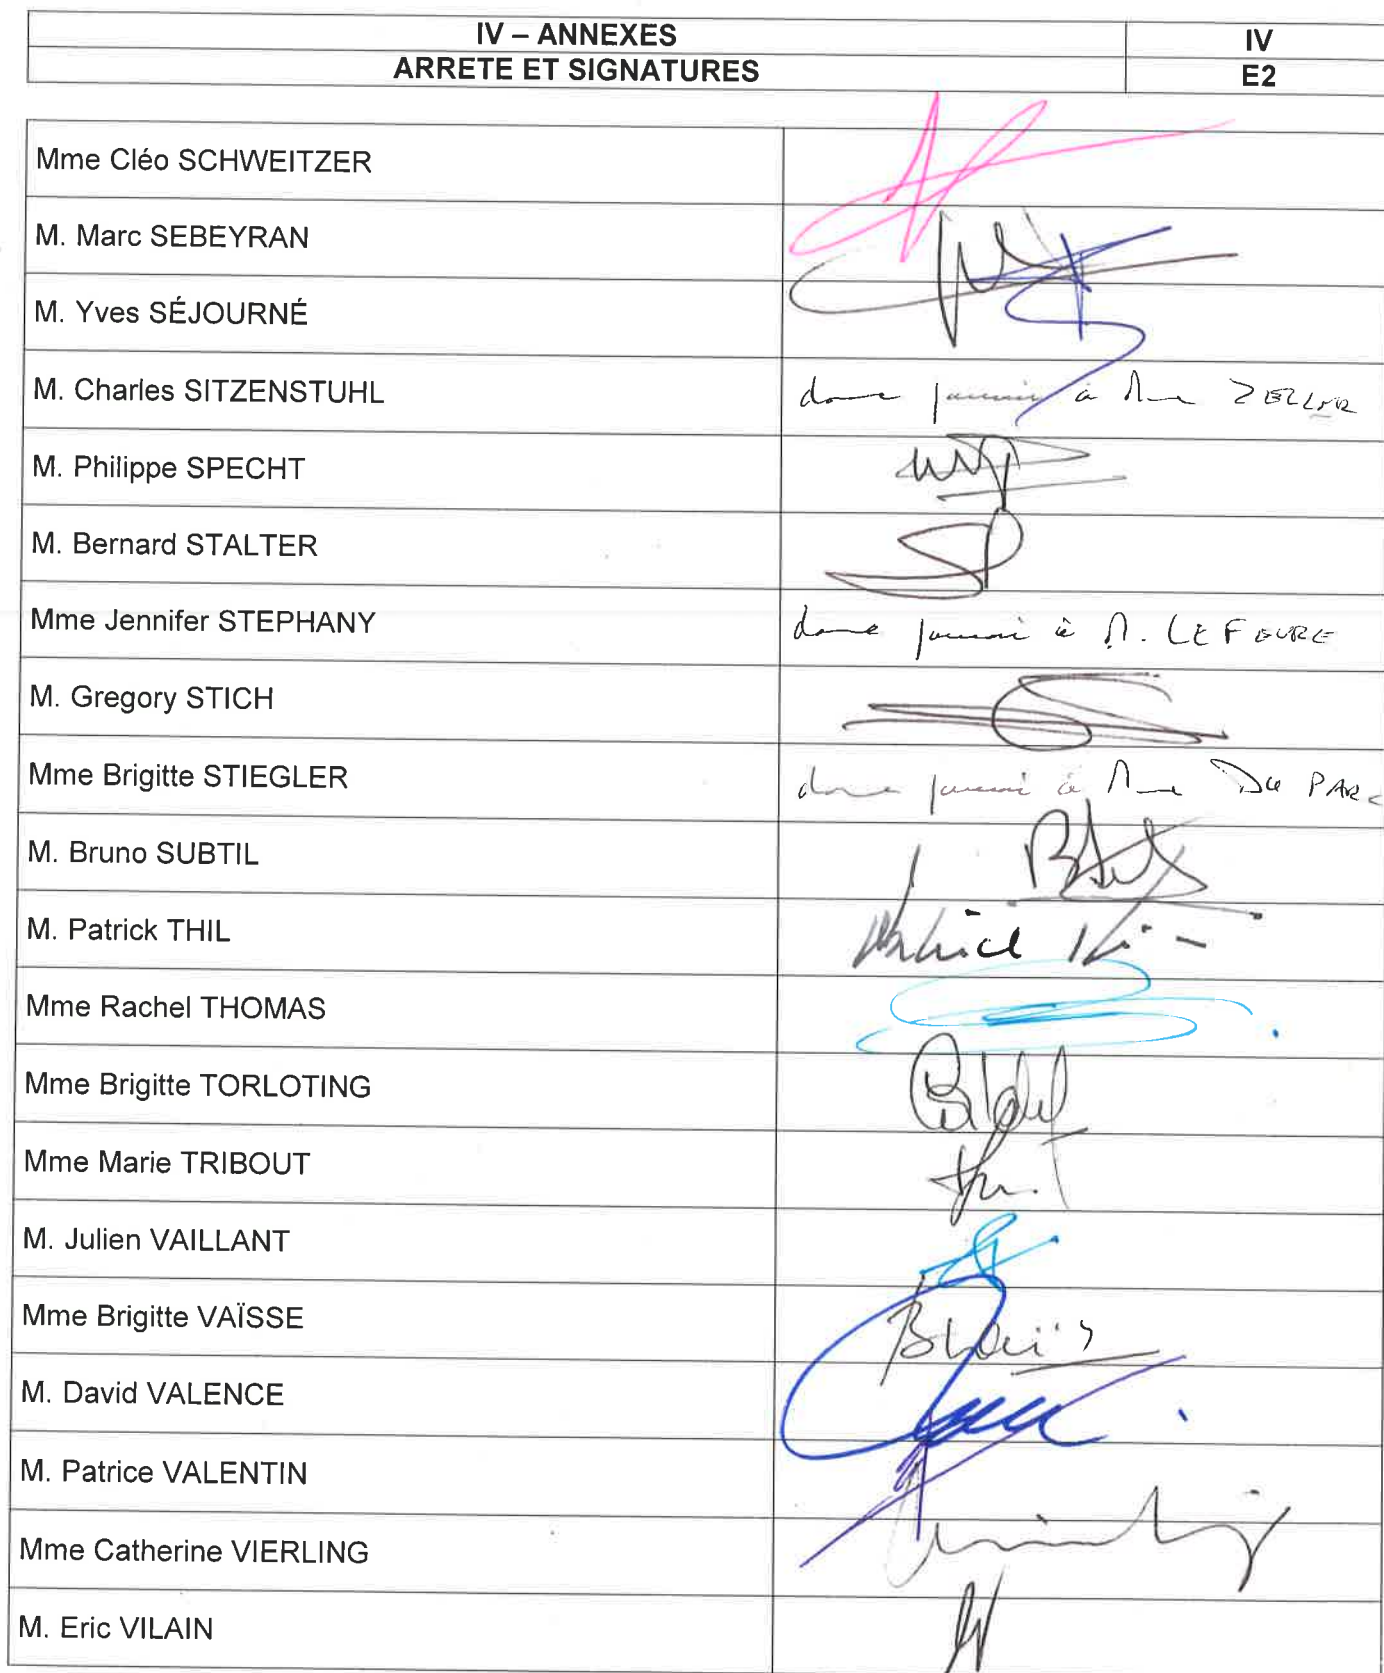 IV – ANNEXES IV
ARRETE ET SIGNATURES E2
Mme Cléo SCHWEITZER
M. Marc SEBEYRAN
M. Yves SÉJOURNÉ
M. Charles SITZENSTUHL donne pouvoir à Mme ZELLER
M. Philippe SPECHT
M. Bernard STALTER
Mme Jennifer STEPHANY donne pouvoir à M. LEFEVRE
M. Gregory STICH
Mme Brigitte STIEGLER donne pouvoir à Mme DU PARC
M. Bruno SUBTIL
M. Patrick THIL
Mme Rachel THOMAS
Mme Brigitte TORLOTING
Mme Marie TRIBOUT
M. Julien VAILLANT
Mme Brigitte VAÏSSE
M. David VALENCE
M. Patrice VALENTIN
Mme Catherine VIERLING
M. Eric VILAIN